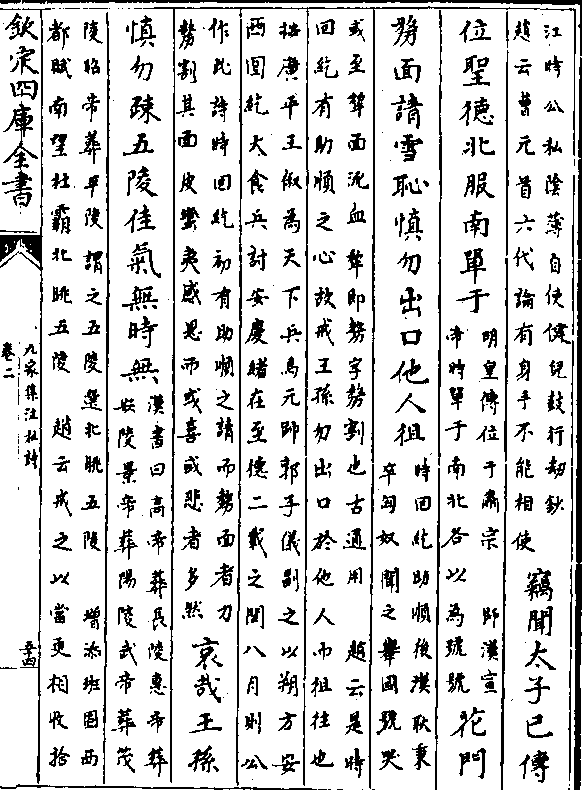 江時公私陰薄自使傖兒鼓行刼鈔
趙云曹元首六代論有身手不能相使
竊聞太子已傳
位聖德北服南單于
明皇傳位于肅宗 師漢宣
帝時單于南北各以為號號
花門
剺面請雪恥慎勿出口他人狙
時回紇助順後漢耿秉
卒匈奴聞之舉國號哭
或至犂面流血犂即剺字剺割也古通用 趙云是時
回紇有助順之心故戒王孫勿出口於他人而狙往也
拙廣平王俶為天下兵馬元帥郭子儀副之以朔方安
西回紇大食兵討安慶緒在至德二載之閏八月則公
作此詩時回紇初有助順之請而剺面者刀
剺割其面皮蠻夷感恩而或喜或悲者多然
哀哉王孫
慎勿疎五陵佳氣無時無
漢書曰高帝葬長陵惠帝葬
安陵景帝葬陽陵武帝葬茂
陵昭帝葬平陵謂之五陵選北眺五陵 增添班固西
都賦南望杜霸北眺五陵 趙云戒之以當更相收拾
欽定四庫全書
九家集注杜詩
卷二